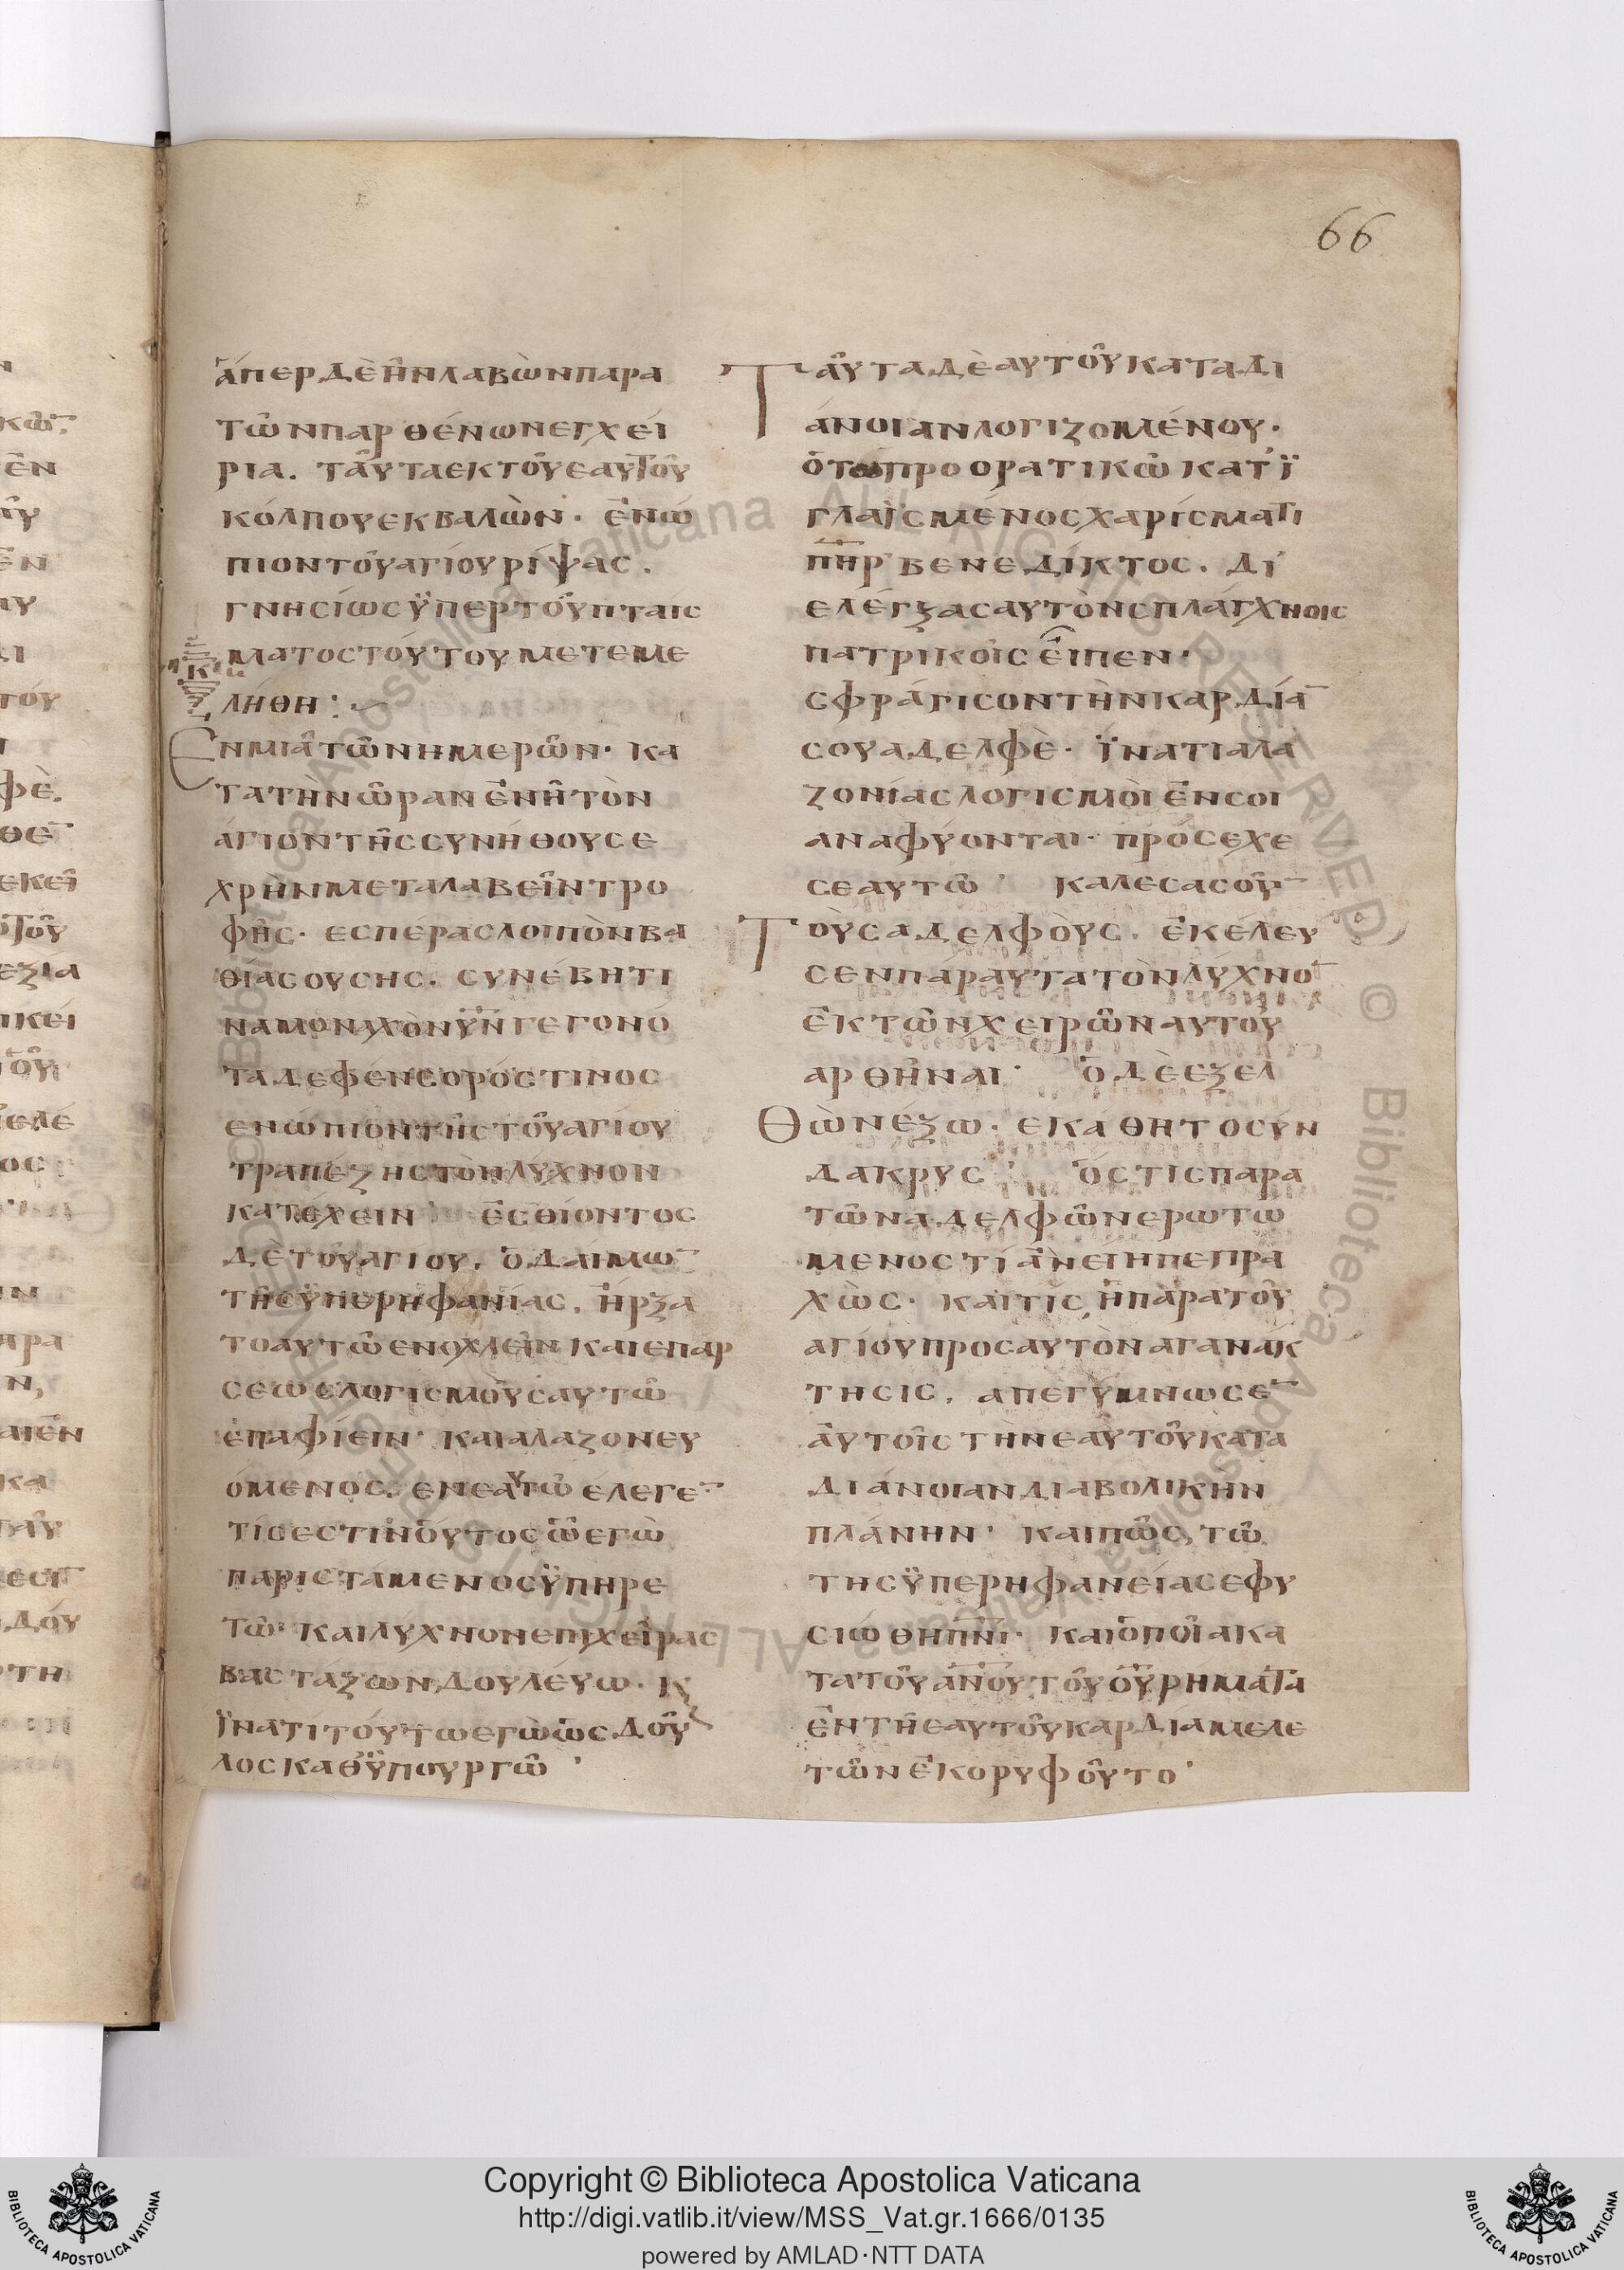 66
ἅπερ δὲ ἦν λαβὼν παρα
τῶν παρθένων εγχεί
ρια. ταῦτα εκ τοῦ εαυτοῦ
κόλπου εκβαλὼν· ἐνώ
πιον τοῦ αγίου ρίψας.
γνησίως ϋπερ τοῦ πταίς
ματος τούτου μετεμε
λήθη:
Κ
Εν μιᾶ τῶν ημερῶν· κα
τα τὴν ὥραν ἐν ῆ τὸν
ἁγιον τῆς συνήθους ε
χρὴν μεταλαβεῖν τρο
φῆς· εσπέρας λοιπὸν βα
θίας ουσης. συνέβη τι
να μοναχὸν υ̅ν̅ γεγονό
τα δεφένσορός τινος
ενώπιον τῆς τοῦ αγίου
τραπέζης τὸν λύχνον
κατέχειν εσθίοντος
δὲ τοῦ αγιου. ὁ δαίμω̅
τῆς ϋπερηφανίας. ἤρξα
το αυτῶ ενοχλεῖν και επαρ
σεως λογισμοὺς αυτῶ
ἐπαφίειν· και αλαζονευ
όμενος. εν εαυτῶ έλεγε̅
τίς εστιν οὗτος ὧ εγὼ
παριστάμενος ϋπηρε
τῶ· και λύχνον επι χεῖρας
βαστάζων δουλεύω· κ
ϊνατί τούτω εγὼ ὡς δοῦ
λος καθϋπουργῶ·
Ταῦτα δὲ αυτοῦ κατα δι
άνοιαν λογιζομένου·
ὁ τῶ προορατικῶ κατϊ
γλαϊσμένος χαρίσματι
π̅η̅ρ̅ βενεδίκτος. δι
ελέγξας αυτὸν σπλάγχνοις
πατρικοῖς εἶπεν·
σφράγισον τὴν καρδία̅
σου αδελφὲ· ϊνατι αλα
ζονίας λογισμοὶ ἐν σοι
αναφύονται· πρόσεχε
σεαυτῶ· καλεσας οὖ̅
Τοὺς αδελφοὺς. ἐκέλευ
σεν πάραυτα τὸν λύχνο̅
ἐκ τῶν χειρῶν αυτοῦ
αρθῆναι· ὁ δὲ εξελ
Θὼν έξω· εκάθητο σύν
δακρυς· ὅστις παρα
τῶν αδελφῶν ερωτω
μενος τί ἂν είη πεπρα
χὼς· και τίς ἡ παρα τοῦ
αγίου προς αυτὸν αγανάκ
τησις. απεγύμνωσε̅
ἀυτοῖς τὴν εαυτοῦ κατα
διάνοιαν διαβολικην
πλάνην· και πῶς τῶ
της ϋπερηφανείας εφυ
σιώθη π̅ν̅ι̅· και ὁποῖα κα
τα τοῦ α̅ν̅ο̅υ̅ τοῦ θ̅υ̅ ρήματα
ἐν τῆ εαυτοῦ καρδία μελε
τῶν ἐκορυφοῦτο·
Copyright © Biblioteca Apostolica Vaticana
http://digi.vatlib.it/view/MSS_Vat.gr.1666/0135
powered by AMLAD·NTT DATA